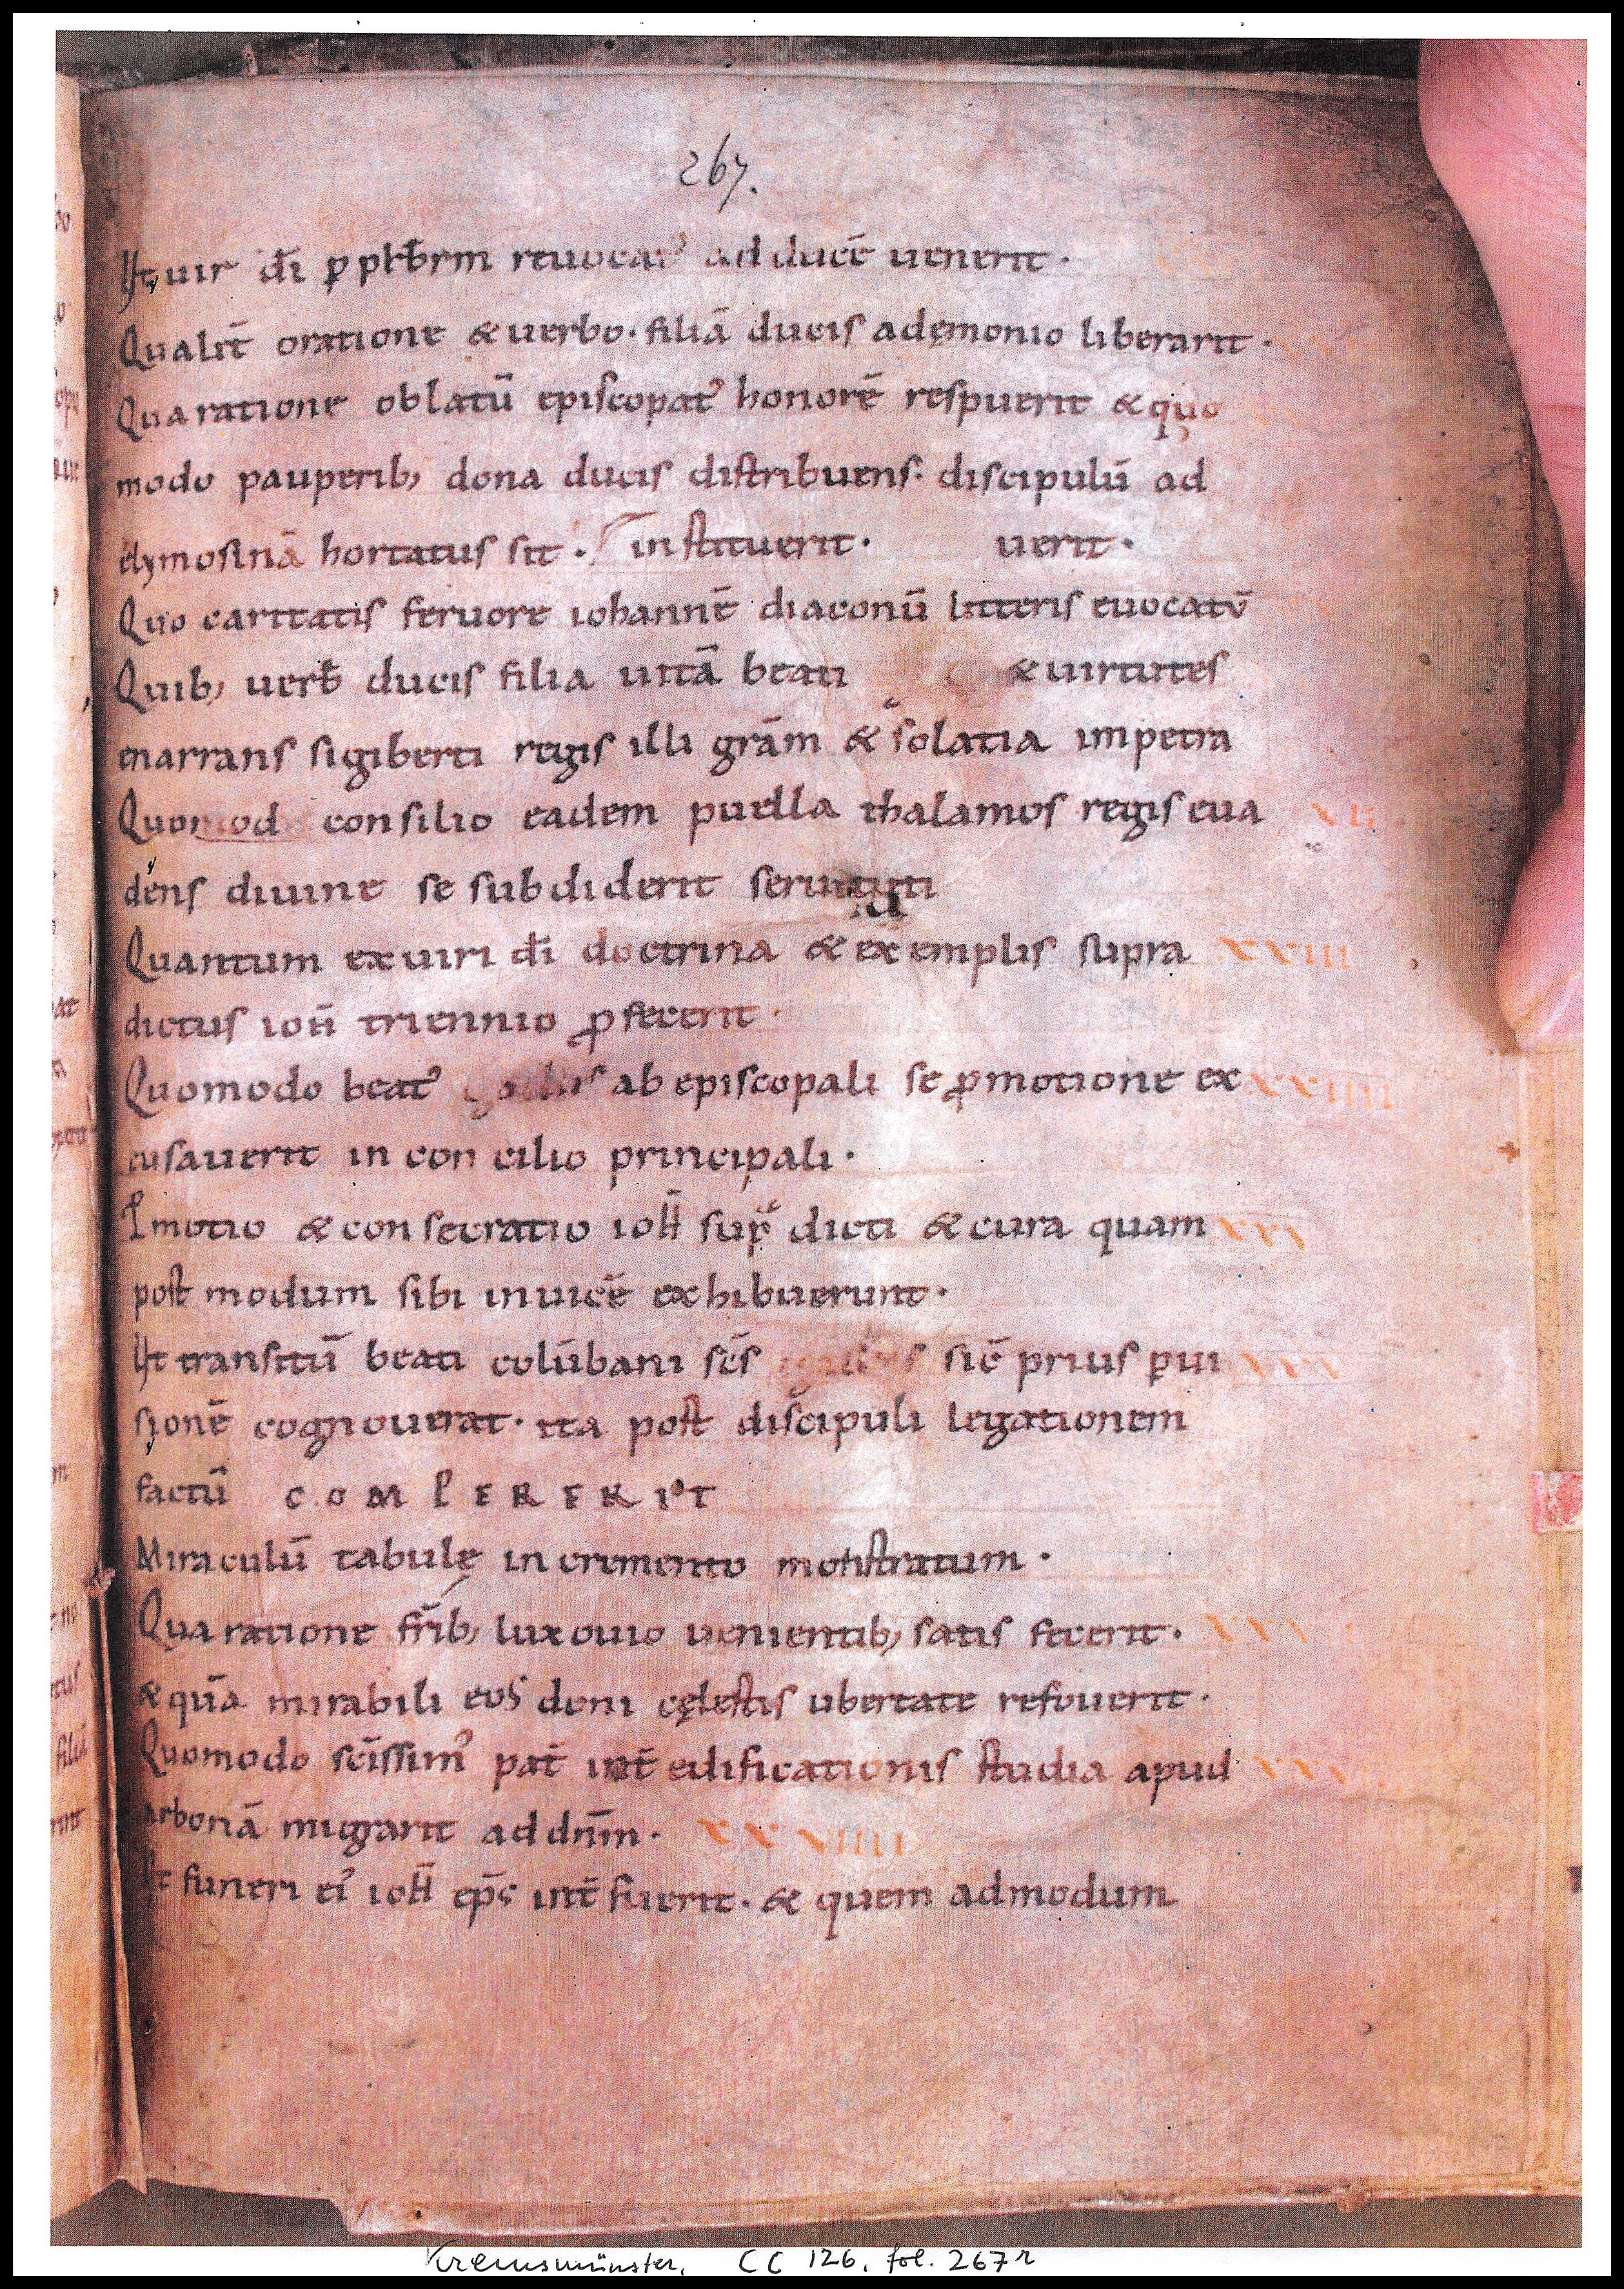 267.
Ut uir dī ꝑ p̄sƀrm reuocatꝰ ad ducē uenerit.
Qualit̄ oratione & uerbo. filiā ducis adęmonio liberarit.
Qua ratione oblatū episcopatꝰ honorē respuerit & quo
modo pauperib; dona ducis distribuens. discipulū ad
elymosinā hortatus sit. instituerit. uerit.
Quo caritatis feruore iohannē diaconū litteris euocatū
Quib; uerƀ ducis filia uitā beati & uirtutes
enarrans sigiberti regis illi grām & solatia impetra
Quomod consilio eadem puella thalamos regis eua
dens diuine se subdiderit seruituti
Quantum ex uiri dī doctrina & exemplis supra XXIII
dictus ioħ triennio ꝓfecerit.
Quomodo beatꝰ gallus ab episcopali se ꝓmotione ex XXIIII
cusauerit in concilio principali.
Pmotio & consecratio ioħ supͣ dicti & cura quam XXV
post modum sibi inuicē exhibuerunt.
Ut transitū beati colūbani sc̄s gallus sic̄ prius ꝑ ui
sionē cognouerat. ita post discipuli legationem
factū COMPERERIT
Miraculū tabulę incremento monstratum.
Qua ratione fr̄ib; luxouio uenientib; satis fecerit.
& quā mirabili eos doni cęlestis ubertate refouerit.
Quomodo sc̄issimꝰ pat̄ int̄ edificationis studia apud
arbonā migrarit ad dn̄m. XXVIIII
Ut funeri eiꝰ ioħ ep̄s int̄fuerit. & quem admodum
Kremsmünster, CC 126, fol. 267r